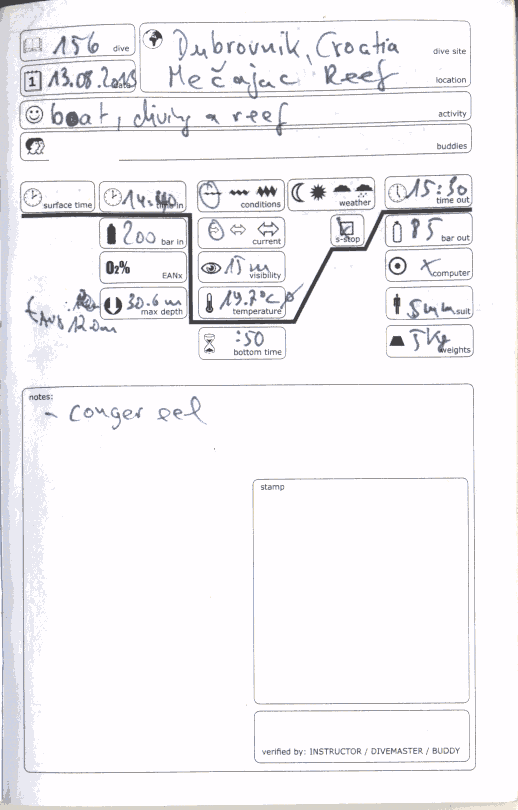 156 dive
Dubrovnik, Croatia dive site
13.08.2013 date
Mečajac Reef location
boat, diving a reef activity
buddies
surface time
14:40 time in
conditions
weather
15:30 time out
200 bar in
current
s-stop
85 bar out
O₂% EANx
15 m visibility
x computer
30.6 m max depth
19.2°C temperature
5mm suit
AVG 12.0m
:50 bottom time
5kg weights
notes:
- conger eel
stamp
verified by: INSTRUCTOR / DIVEMASTER / BUDDY